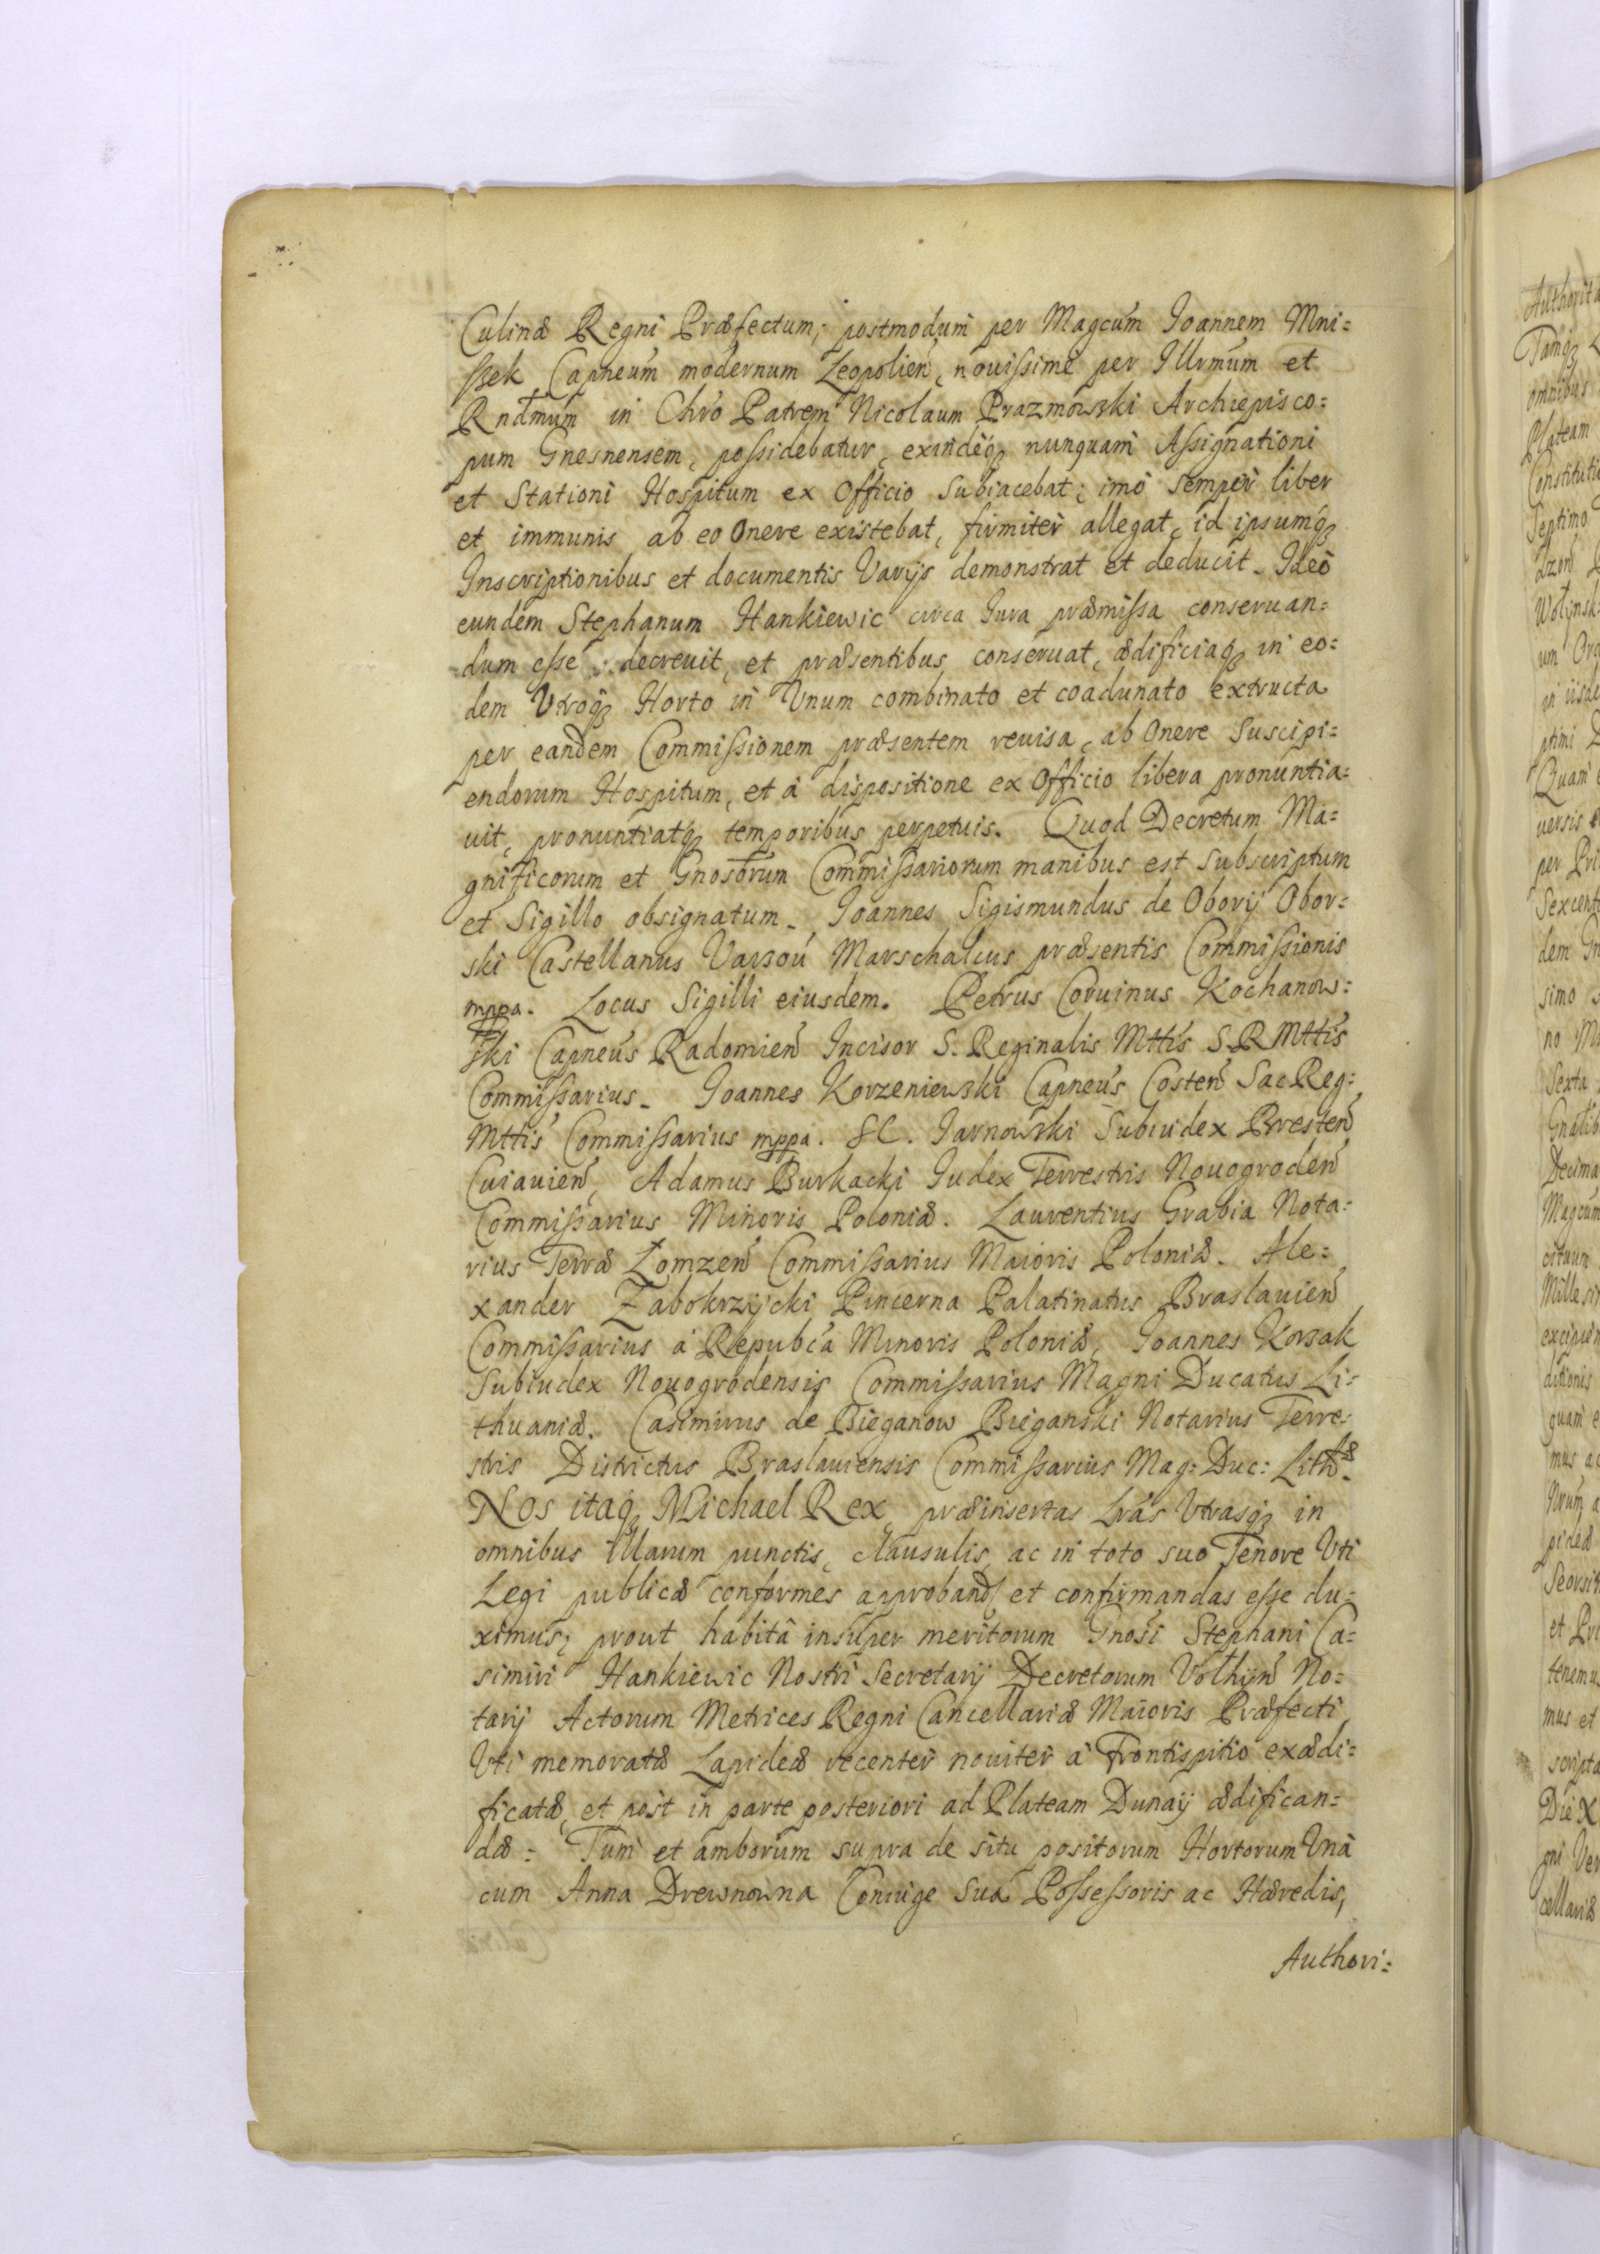 Culinæ Regni Præfectum, postmodum per Magcum Ioannem Mni=
szek Capneum modernum Leopolien, nouissime per Illrmum et
Rndmum in Chro Patrem Nicolaum Prazmowski Archiepisco=
pum Gnesnensem, possidebatur, exindeq3 nunquam Assignationi
et Stationi Hospitum ex Officio subiacebat; imo semper liber
et immunis ab eo Onere existebat, firmiter allegat, id ipsumq3
Inscriptionibus et documentis Varijs demonstrat et deducit. Ideo
eundem Stephanum Hankiewic circa Iura præmissa conseruan=
dum esse: decreuit, et præsentibus conseruat, ædificiaq3 in eo=
dem Vtroq3 Horto in Vnum combinato et coadunato extructa
per eandem Commissionem præsentem reuisa, ab Onere suscipi=
endorum Hospitum, et à dispositione ex Officio libera pronuntia=
uit, pronuntiatq3 temporibus perpetuis. Quod Decretum Ma=
gnificorum et Gnosorum Commissariorum manibus est subscriptum
et Sigillo obsignatum. Ioannes Sigismundus de Obory Obor=
ski Castellanus Varsou Marschalcus præsentis Commissionis
mppa. Locus Sigilli eiusdem. Petrus Coruinus Kochanows=
ski Capneus Radomien Incisor S. Reginalis Mttis S.R Mttis
Commissarius. Ioannes Korzeniewski Capneus Costen Sac Reg:
Mttis Commissarius mppa. SC. Jarnowski Subiudex Bresten
Cuiauien, Adamus Burkacki Iudex Terrestris Nouogroden
Commissarius Minoris Poloniæ. Laurentius Grabia Nota=
rius Terræ Lomzen Commissarius Maioris Poloniæ. Ale=
xander Zabokrzycki Pincerna Palatinatus Braslauien
Commissarius à Repubca Minoris Poloniæ, Ioannes Korsak
Subiudex Nouogrodensis Commissarius Magni Ducatus Li=
thuaniæ. Casimirus de Bieganow Bieganski Notarius Terre=
stris Districtus Braslauiensis Commissarius Mag: Duc: Lithæ.
Nos itaq3 Michael Rex præinsertas Lras Vtrasq3 in
omnibus illarum punctis, clausulis, ac in toto suo Tenore Vti
Legi publicæ conformes approband et confirmandas esse du=
ximus; prout habitâ insuper meritorum Gnosi Stephani Ca=
simiri Hankiewic Nostri Secretarij Decretorum Volhyn No=
tarij Actorum Metrices Regni Cancellariæ Maioris Præfecti
Vti memoratæ Lapideæ recenter nouiter à Frontispitio exædi=
ficatæ, et post in parte posteriori ad Plateam Dunaij ædifican=
dæ: Tum et amborum supra de situ positorum Hortorum Vnà
cum Anna Drewnowna Coniuge Sua Possessoris ac Hæredis,
Authori=